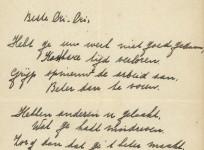 Beste Cri-Cri.
Hebt ge uw werk niet goed gedaan,
Kostbare tijd verloren.
Grijp opnieuw de arbeid aan,
Beter dan te voren.
Hebben anderen u gelaakt,
Wat ge hadt misdreven
Zorg dan dat ge 't beter maakt